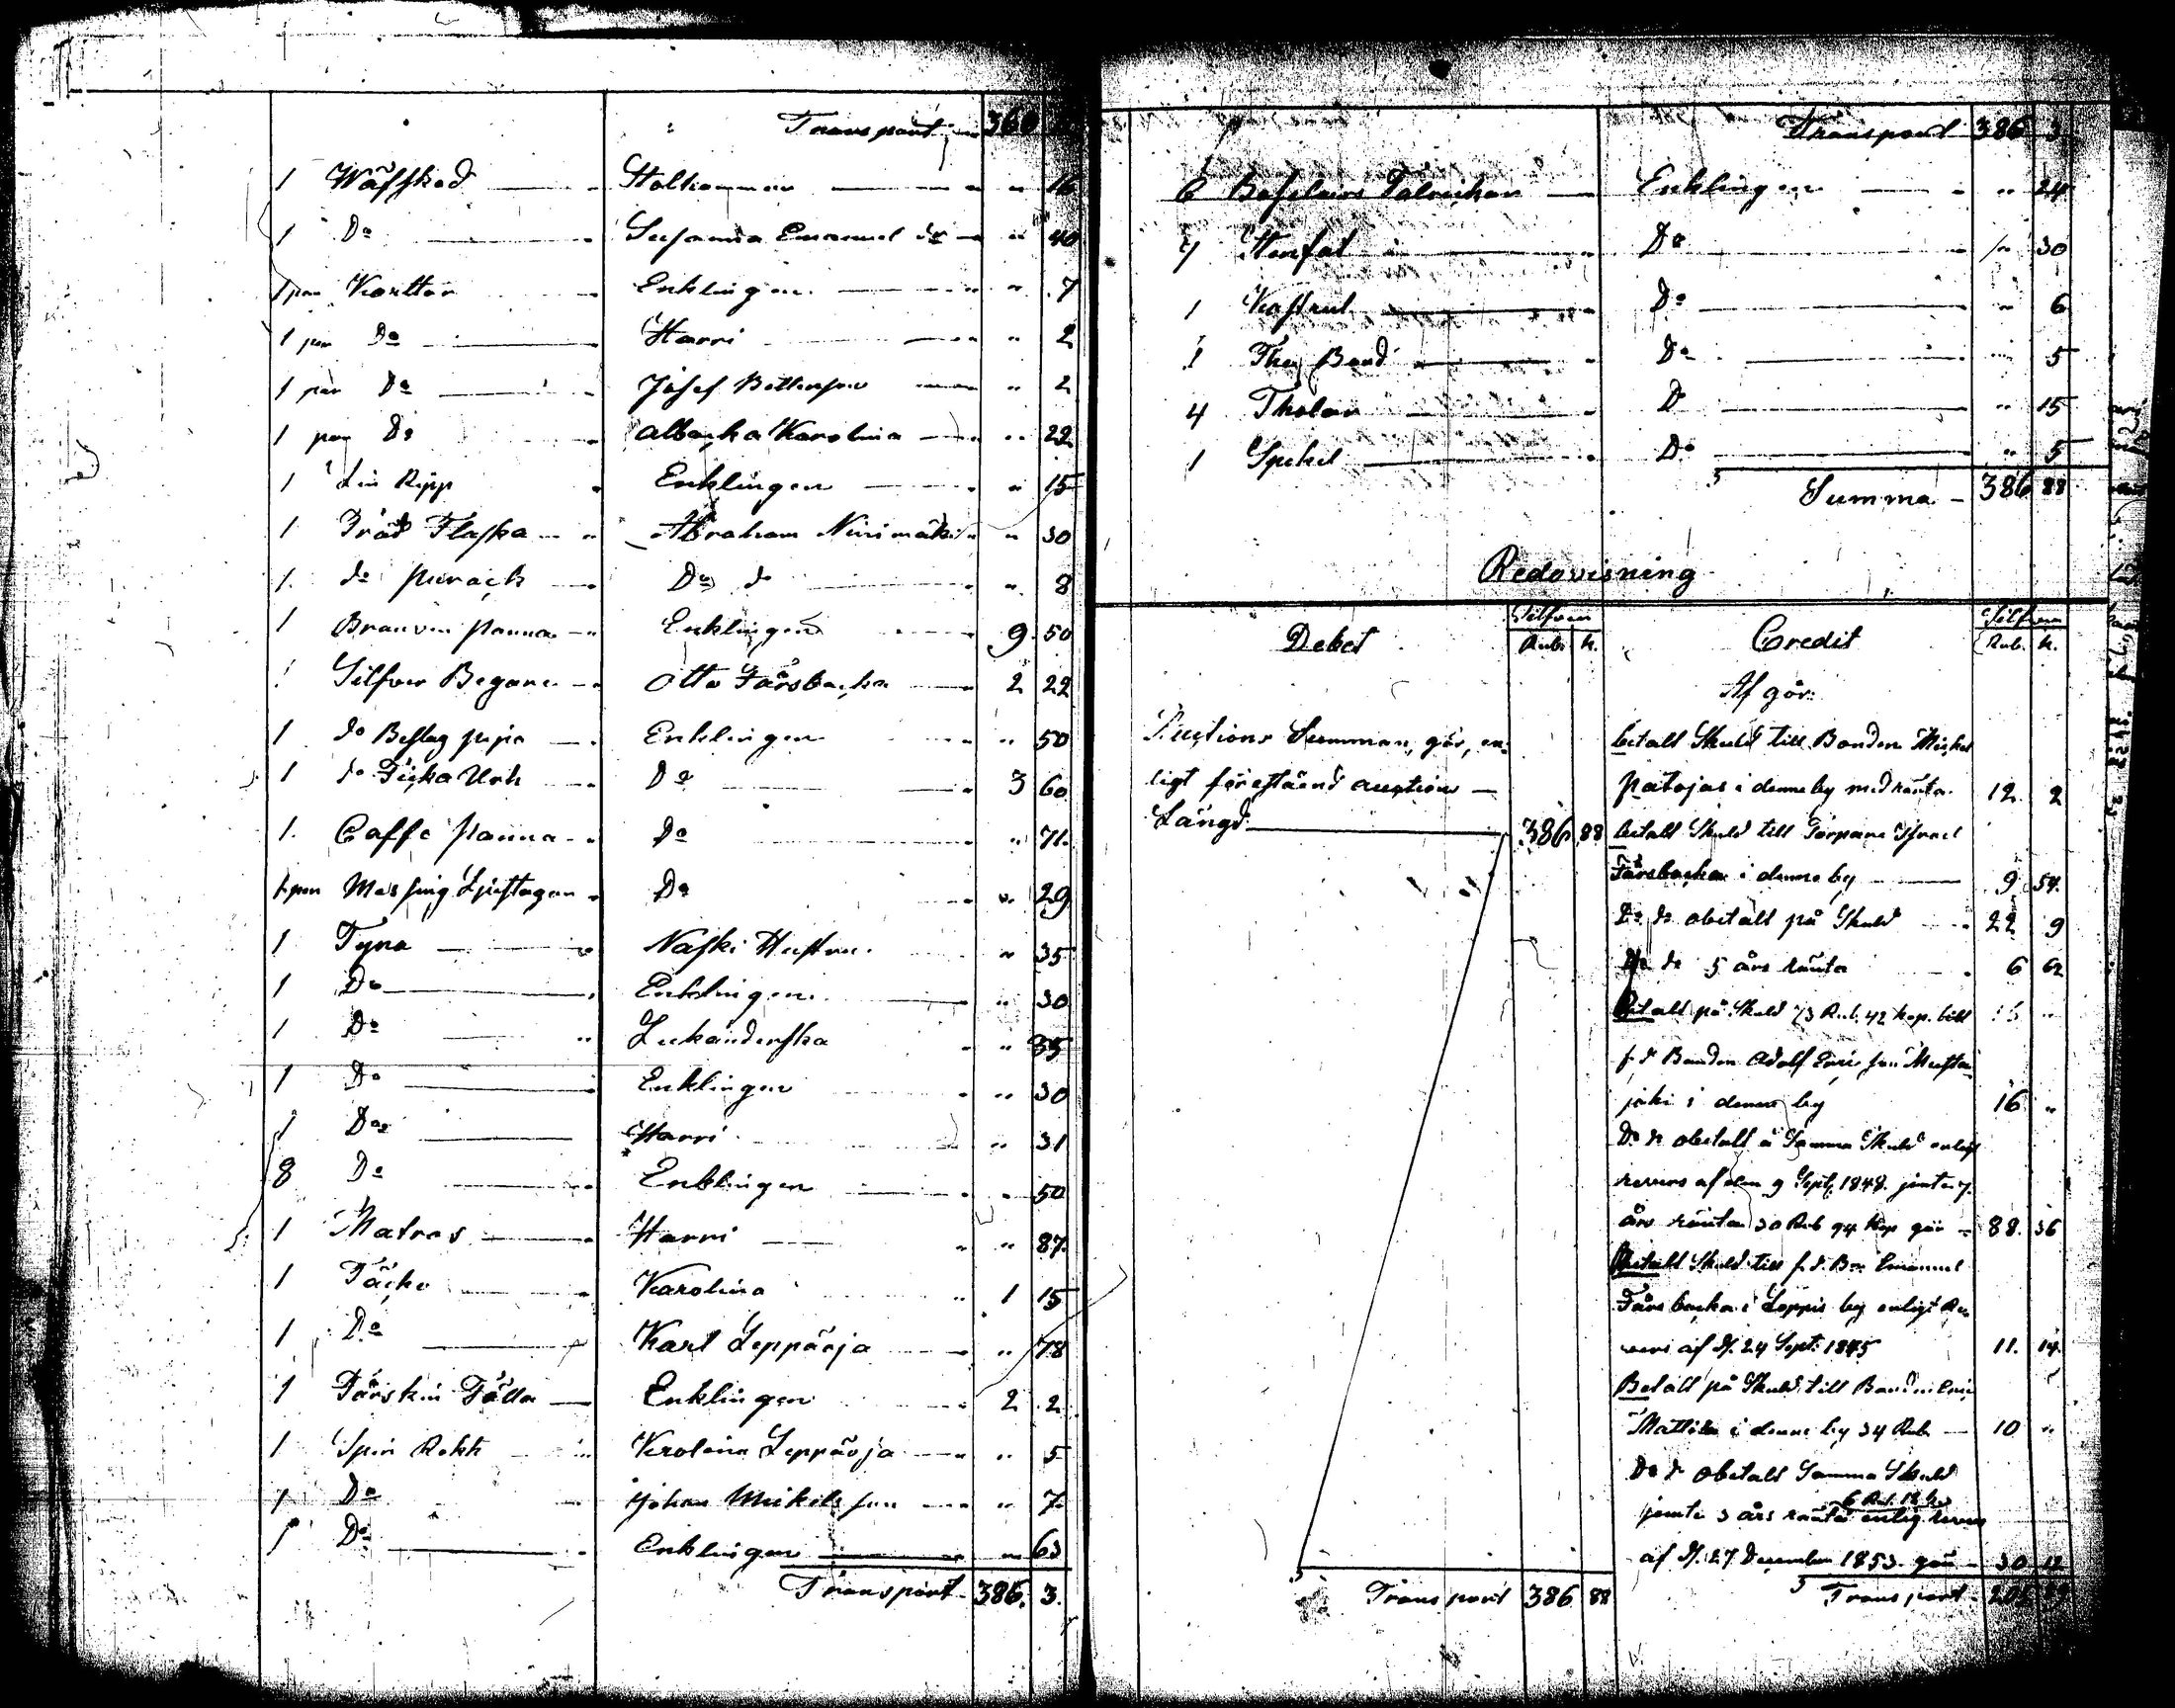 Transport 360
1 Wäfskod Holkommen " 16
1 Do Susanna Emanuel dr " 40
1 par Kartter Enklingen " 7
1 par Do Harri " 2
1 par Do Josef " 2
1 par Do Albacka Karolina " 22
1 Lin Ripp Enklingen " 15
1 Tråd Flaska Abraham Niinimäki " 30
1 do Do do " 8
1 Branvin panna Enklingen 9 50
1 Silfver Begare Otto Fårsbacka 2 22
1 do Beslag pipa Enklingen " 50
1 do Ficka Urh Do 3 60
1 Caffe panna Do " 71
1 par Messing Ljustagen Do " 29
1 Tyna Naski Hustru " 35
1 Do Enklingen " 30
1 Do " 35
1 Do Enklingen " 30
1 Do Harri " 31
8 Do Enklingen " 50
1 Matras Harri " 87
1 Täcke Karolina 1 15
1 Do Karl Leppäoja " 78
1 Fårskin Fälla Enklingen 2 2
1 Spin Rokk Karolina Leppäoja " 5
1 Do Johan Mikels son " 7
1 Do Enklingen " 63
Transport 386. 3.
Transport 386 3
6 Talrickar Enklingen " 24
7 Stenfat Do " 30
1 Kastrul Do " 6
1 They Do " 5
4 Do " 15
1 Spekel Do " 5
Summa 386 88
Redovisning
Debet Silfver Rub. k. Credit Silfver Rub. k.
Af går:
Auctions Summan, gör, en-
ligt förestäend auctions
Längd 386 88
betalt Skuld till Bonden Mickel
Patojas i denne by med ränta 12 2
betalt Skuld till Torpare Israel
Fårsbacka i denne by 9 54
Do do obetalt på Skuld 22 9
Do do 5 års ränta 6 62
Betalt på Skuld 73 Rub. 42 kop. till
f. d. Bonden Adolf Eric son Musta
joki i denne by 16 "
Do do obetalt å Samma Skuld enligt
revers af den 9 Sept. 1848. jemte 7
års ränta 30 Rub 94 kop gör 88. 36
Betalt Skuld till f. d. Bon Emanuel
Fårsbacka i Loppis by enligt Re-
vers af d. 24 Sept: 1845 11. 14.
Betalt på Skuld till Bonden Eric
Mattila i denne by 34 Rub 10 "
Do do obetalt Samma Skuld
6 Rub. 12 k.
jemte 3 års ränta enlig. revers
af d. 27 December 1853. gör 30 12
Transport 386 88
Transport 205